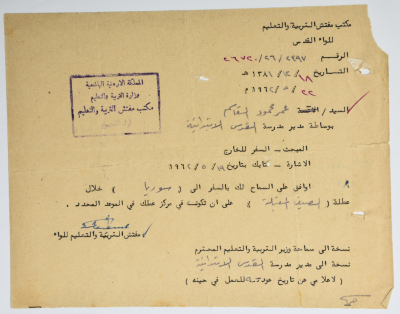 مكتب مفتش التربية والتعليم
للواء القدس
الرقم ٢٦/٧٢٠/٢٦/٢٩٩٧
التاريخ ١٨/١٢/١٣٨١ هـ
٢٢/٥/١٩٦٢ م
المملكة الاردنية الهاشمية
وزارة التربية والتعليم
مكتب مفتش التربية والتعليم
السيد/ عمر محمود القاسم
بوساطة مدير مدرسة القدس الابتدائية
المبحث - السفر للخارج
الاشارة - كتابك بتاريخ ١٩/٥/١٩٦٢
اوافق على السماح لك بالسفر الى ( سوريا ) خلال
عطلة ( الصيف المقبلة ) على ان تكون في مركز عملك في الموعد المحدد .
مفتش التربية والتعليم للواء
نسخة الى سماحة وزير التربية والتعليم المحترم
نسخة الى مدير مدرسة القدس الابتدائية
( لاعلامي عن تاريخ عودته للعمل في حينه )